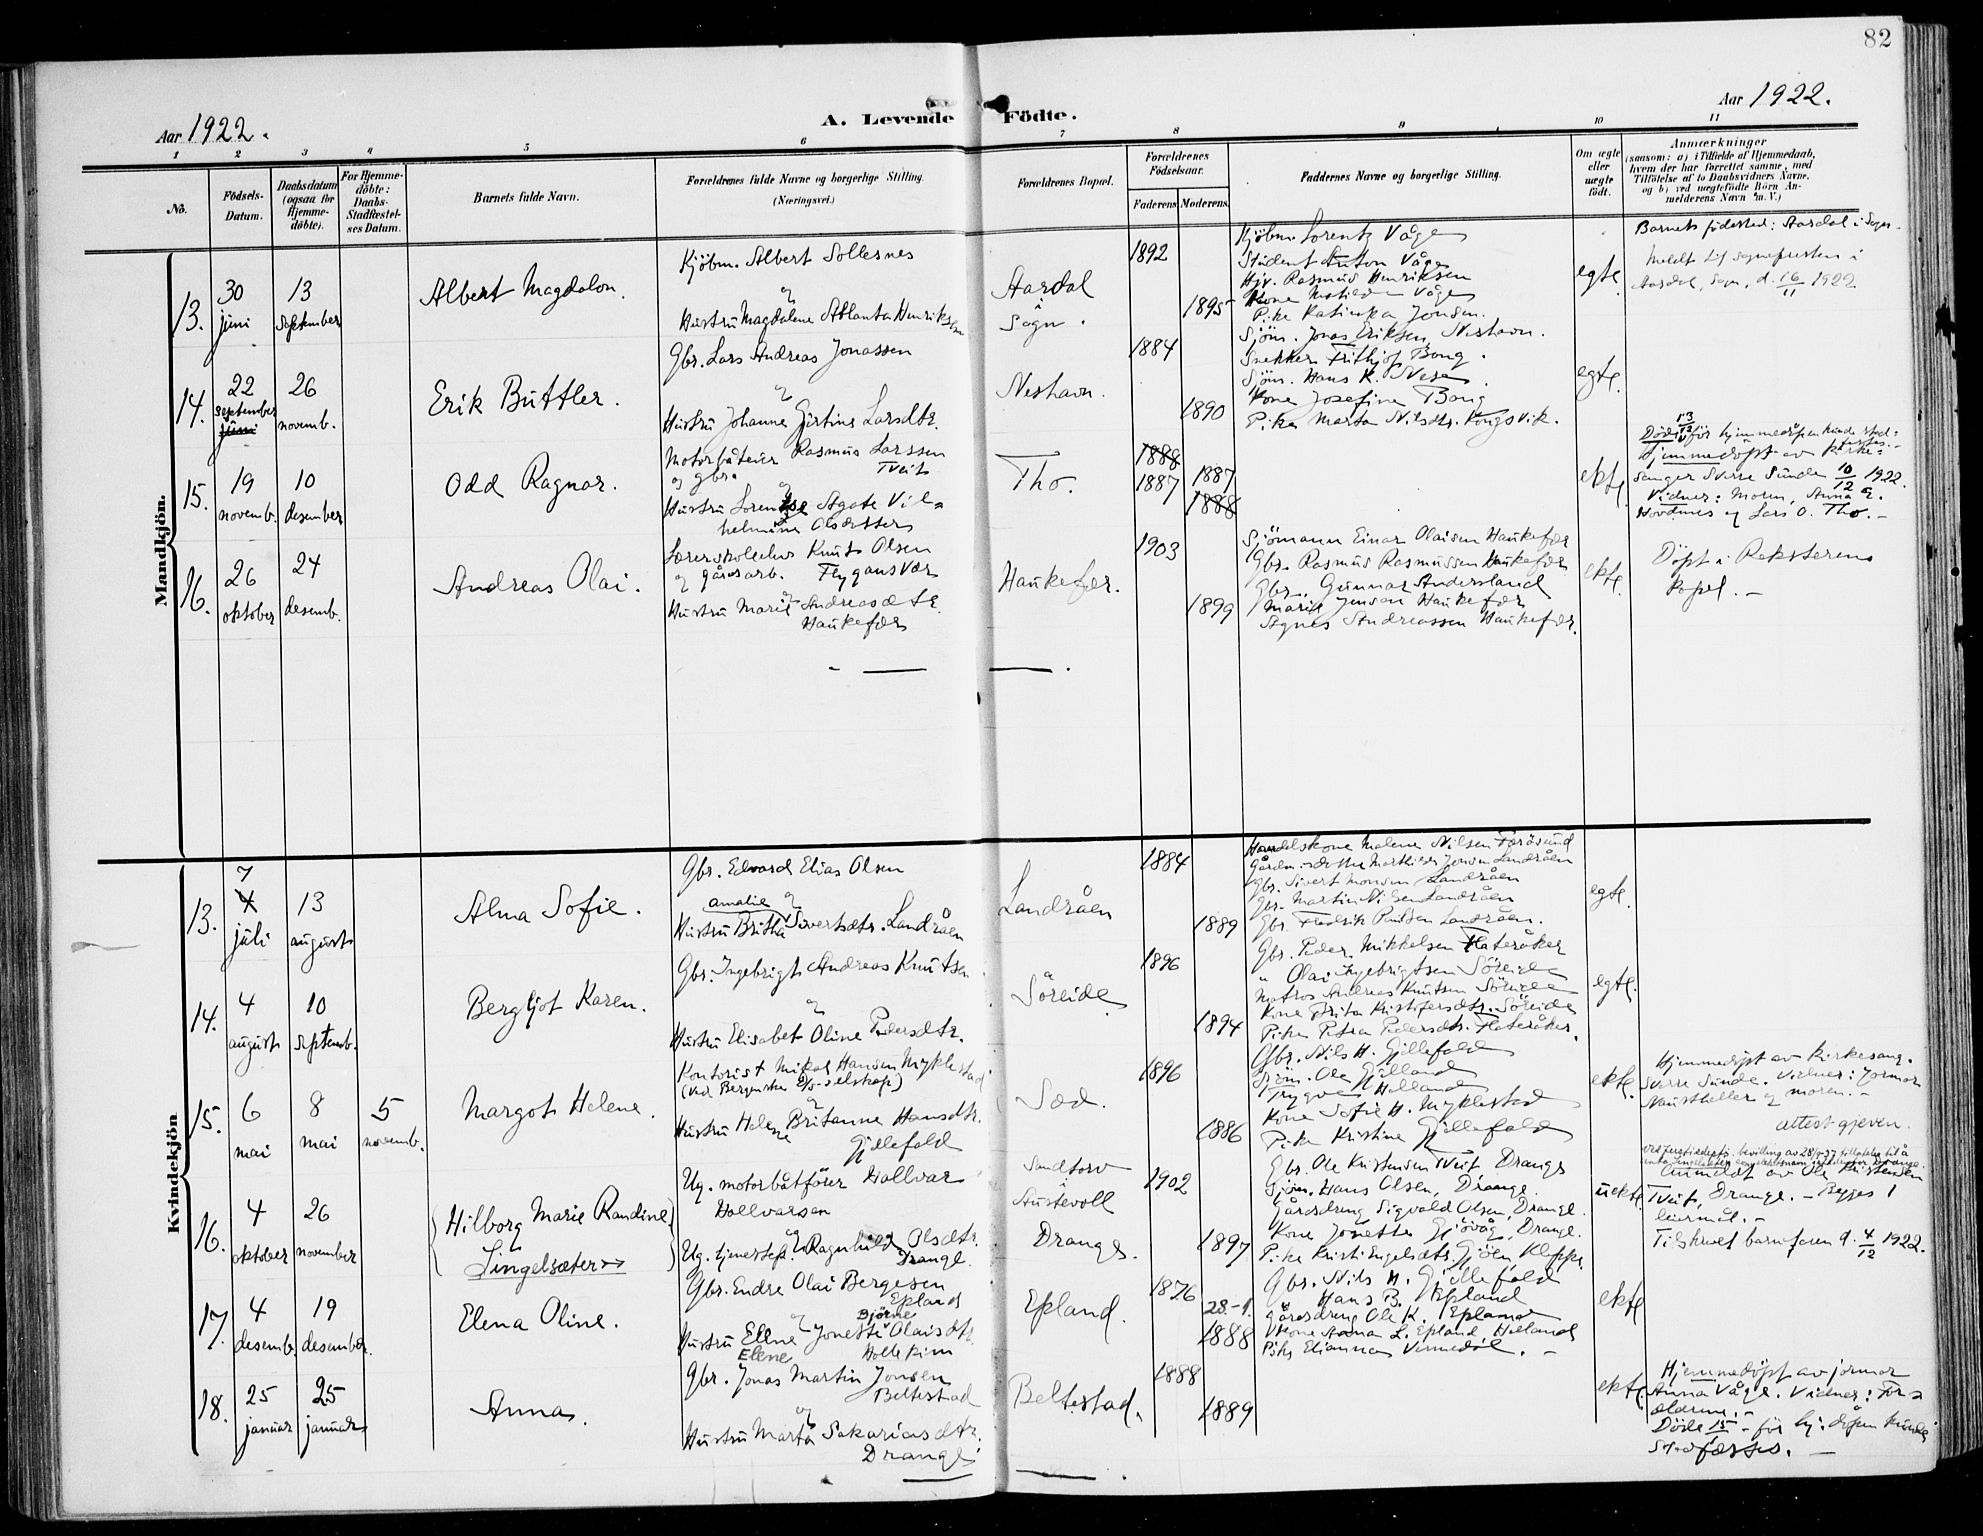 82
Aar 1922.
A. Levende Födte.
Aar 1922.
1 2 3 4 5 6 7 8 9 10 11
No.
Födsels-Datum.
Daabsdatum (ogsaa for Hjemme-döbte).
For Hjemme-döbte: Daabs-Stadfæstel-ses Datum.
Barnets fulde Navn.
Forældrenes fulde Navne og borgerlige Stilling.
(Næringsvei.)
Forældrenes Bopæl.
Forældrenes Födselsaar.
Faderens Moderens
Faddernes Navne og borgerlige Stilling.
Om ægte eller uægte födt.
Anmærkninger
(saasom: a) i Tilfælde af Hjemmedaab, hvem der har forrettet samme, med Tilföielse af to Daabsvidners Navne, og b) ved uægtefödte Börn An-melderens Navn m. V.)
Mandkjön.
13.
30 juni
13 September
Albert Magdalon.
Kjöbm. Albert Sollesnes
og
Hustru Magdalene Atlanta Henriksen
Aardal i Sogn.
1892
1895
Kjöbm. Lorentz Våge
Student Anton Våge
Hjv. Rasmus Henriksen
Kone Våge
Pike Katinka Jonsen.
egte
Barnets födested: Aardal i Sogn.
Meldt til sognepresten i
Aardal, Sogn, d. 16/11 1922
14.
22 september juni
26 novemb.
Erik Buttler.
Gbr. Lars Andreas Jonassen
og
Hustru Johanne Gjertine Larsdtr.
Neshavn.
1884
1890
Sjöm. Jonas Eriksen, Neshavn.
Snekker Frithjof Bong.
Sjöm. Hans K. Nese.
Kone Josefine Bong
Pike Marta Nilsdtr. Kongsvik.
egte.
15.
19 novemb.
10 desember
Odd Ragnar.
Motorbåteier Rasmus Larssen
og gbr. Tveit
og
Hustru Lorentse Agate Vil=
helmine Olsdatter
Tho.
1888
1887
1887
1888
ekte
Döde 13/12 för hjemmedåpen kunde stad-
festes.-
Hjemmedöpt av kirke-
sanger Sverre Sunde 10/12 1922.
Vidner: Moren, Anna E.
Hovdnes og Lars O. Tho.-
16.
26 oktober
24 desemb.
Andreas Olai.
Lærerskoleelev Knut Olsen
og gårdsarb. Flygansvær
og
Hustru Marie Andreasdtr.
Haukefær
Haukefær.
1903
1899
Sjömann Einar Olaisen Haukefær
Gbr. Rasmus Rasmussen Haukefær
Gbr. Gunnar Andersland
Marie Jensen Haukefær
Agnes Andreassen Haukefær.
ekte.
Döpt i Reksteren
kapel.-
Kvindekjön
13.
7 4 juli
13 august
Alma Sofie.
Gbr. Edvard Elias Olsen
amalie og
Hustru Britha Sivertsdtr. Landråen
Landråen
1884
1889
Handelskone Malene Nilsen Færösund
Gbr. Sivert Monsen Landråen
Gbr. Martin Nilsen Landråen
Gbr. Fredrik Paulsen Landråen.
egte.
14.
4 august
10 septemb.
Bergljot Karen.
Gbr. Ingebrigt Andreas Knutsen
og
Hustru Elisabet Oline Pedersdtr.
Söreide
1896
1894
Gbr. Peder Mikkelsen Flateråker
" Olai Ingebrigtsen Söreide
Matros Andreas Knutsen Söreide
Kone Brita Kristofersdtr. Söreide
Pike Petra Pedersdtr. Flateråker.
egte.
15.
6 mai
8 mai
5 novemb.
Margot Helene.
Kontorist Mikal Hansen Myklestad
(ved Bergenske D/S-selskap)
og
Hustru Helene Britanne Hansdtr.
Gjellefald
Sæd.
1896
1886
Gbr. Nils H. Gjellefald
Sjöm. Ole Gjelland
Trygve Holland
Kone Sofie H. Myklestad
Pike Kristine Gjellefald
ekte.
Hjemmedöpt av Kirkesang.
Sverre Sunde. Vidner: Jormor
Naustheller og moren.-
attest gjeven.
16.
4 oktober
26 november
Hilborg Marie Randine
Lingelsæter
Ug. motorbåtförer Hallvar
Hallvarsen
og
Ug. tjenestep. Ragnhild Olsdtr.
Drange
Sandtorv
Austevoll
Drange.
1902
1897
Gbr. Ole Kristensen Tveit Drange
Sjöm. Hans Olsen, Drange.
Gårdsdreng Sigvald Olsen, Drange.
Kone Jonette Gjövåg, Drange.
Pike Kristi Engelsdtr. Gjöen Kleppe.
uekte.
Anmeldt av Ole Kristensen
Tveit, Drange. - Begges 1
leiermål.-
Tilskrevet barnefaren d. 4/12 1922.
17.
4 desemb.
19 desember.
Elena Oline.
Gbr. Endre Olai Bergesen
Epland
Björne
Hustru Ellne Jonette Olaisdtr.
Elene
Epland.
1876
28.-1.
1888
Gbr. Nils H. Gjellefald
Hans B. Epland
Gårdsdreng Ole K. Epland
Kone Anna L. Epland, Holland
Pike Elianna Vinnedal.-
ekte
18.
25 januar
25 januar
Anna.
Gbr. Jonas Martin Jonsen
Beltestad
og
Hustru Marta Sakariasdtr.
Drange
Beltestad.
1888
1889
ekte.
Hjemmedöpt av jormor
Anna Våge. Vidner: For-
ældrene.-
Döde 15/- för hj. dåpen kunde
stadfæstes.-